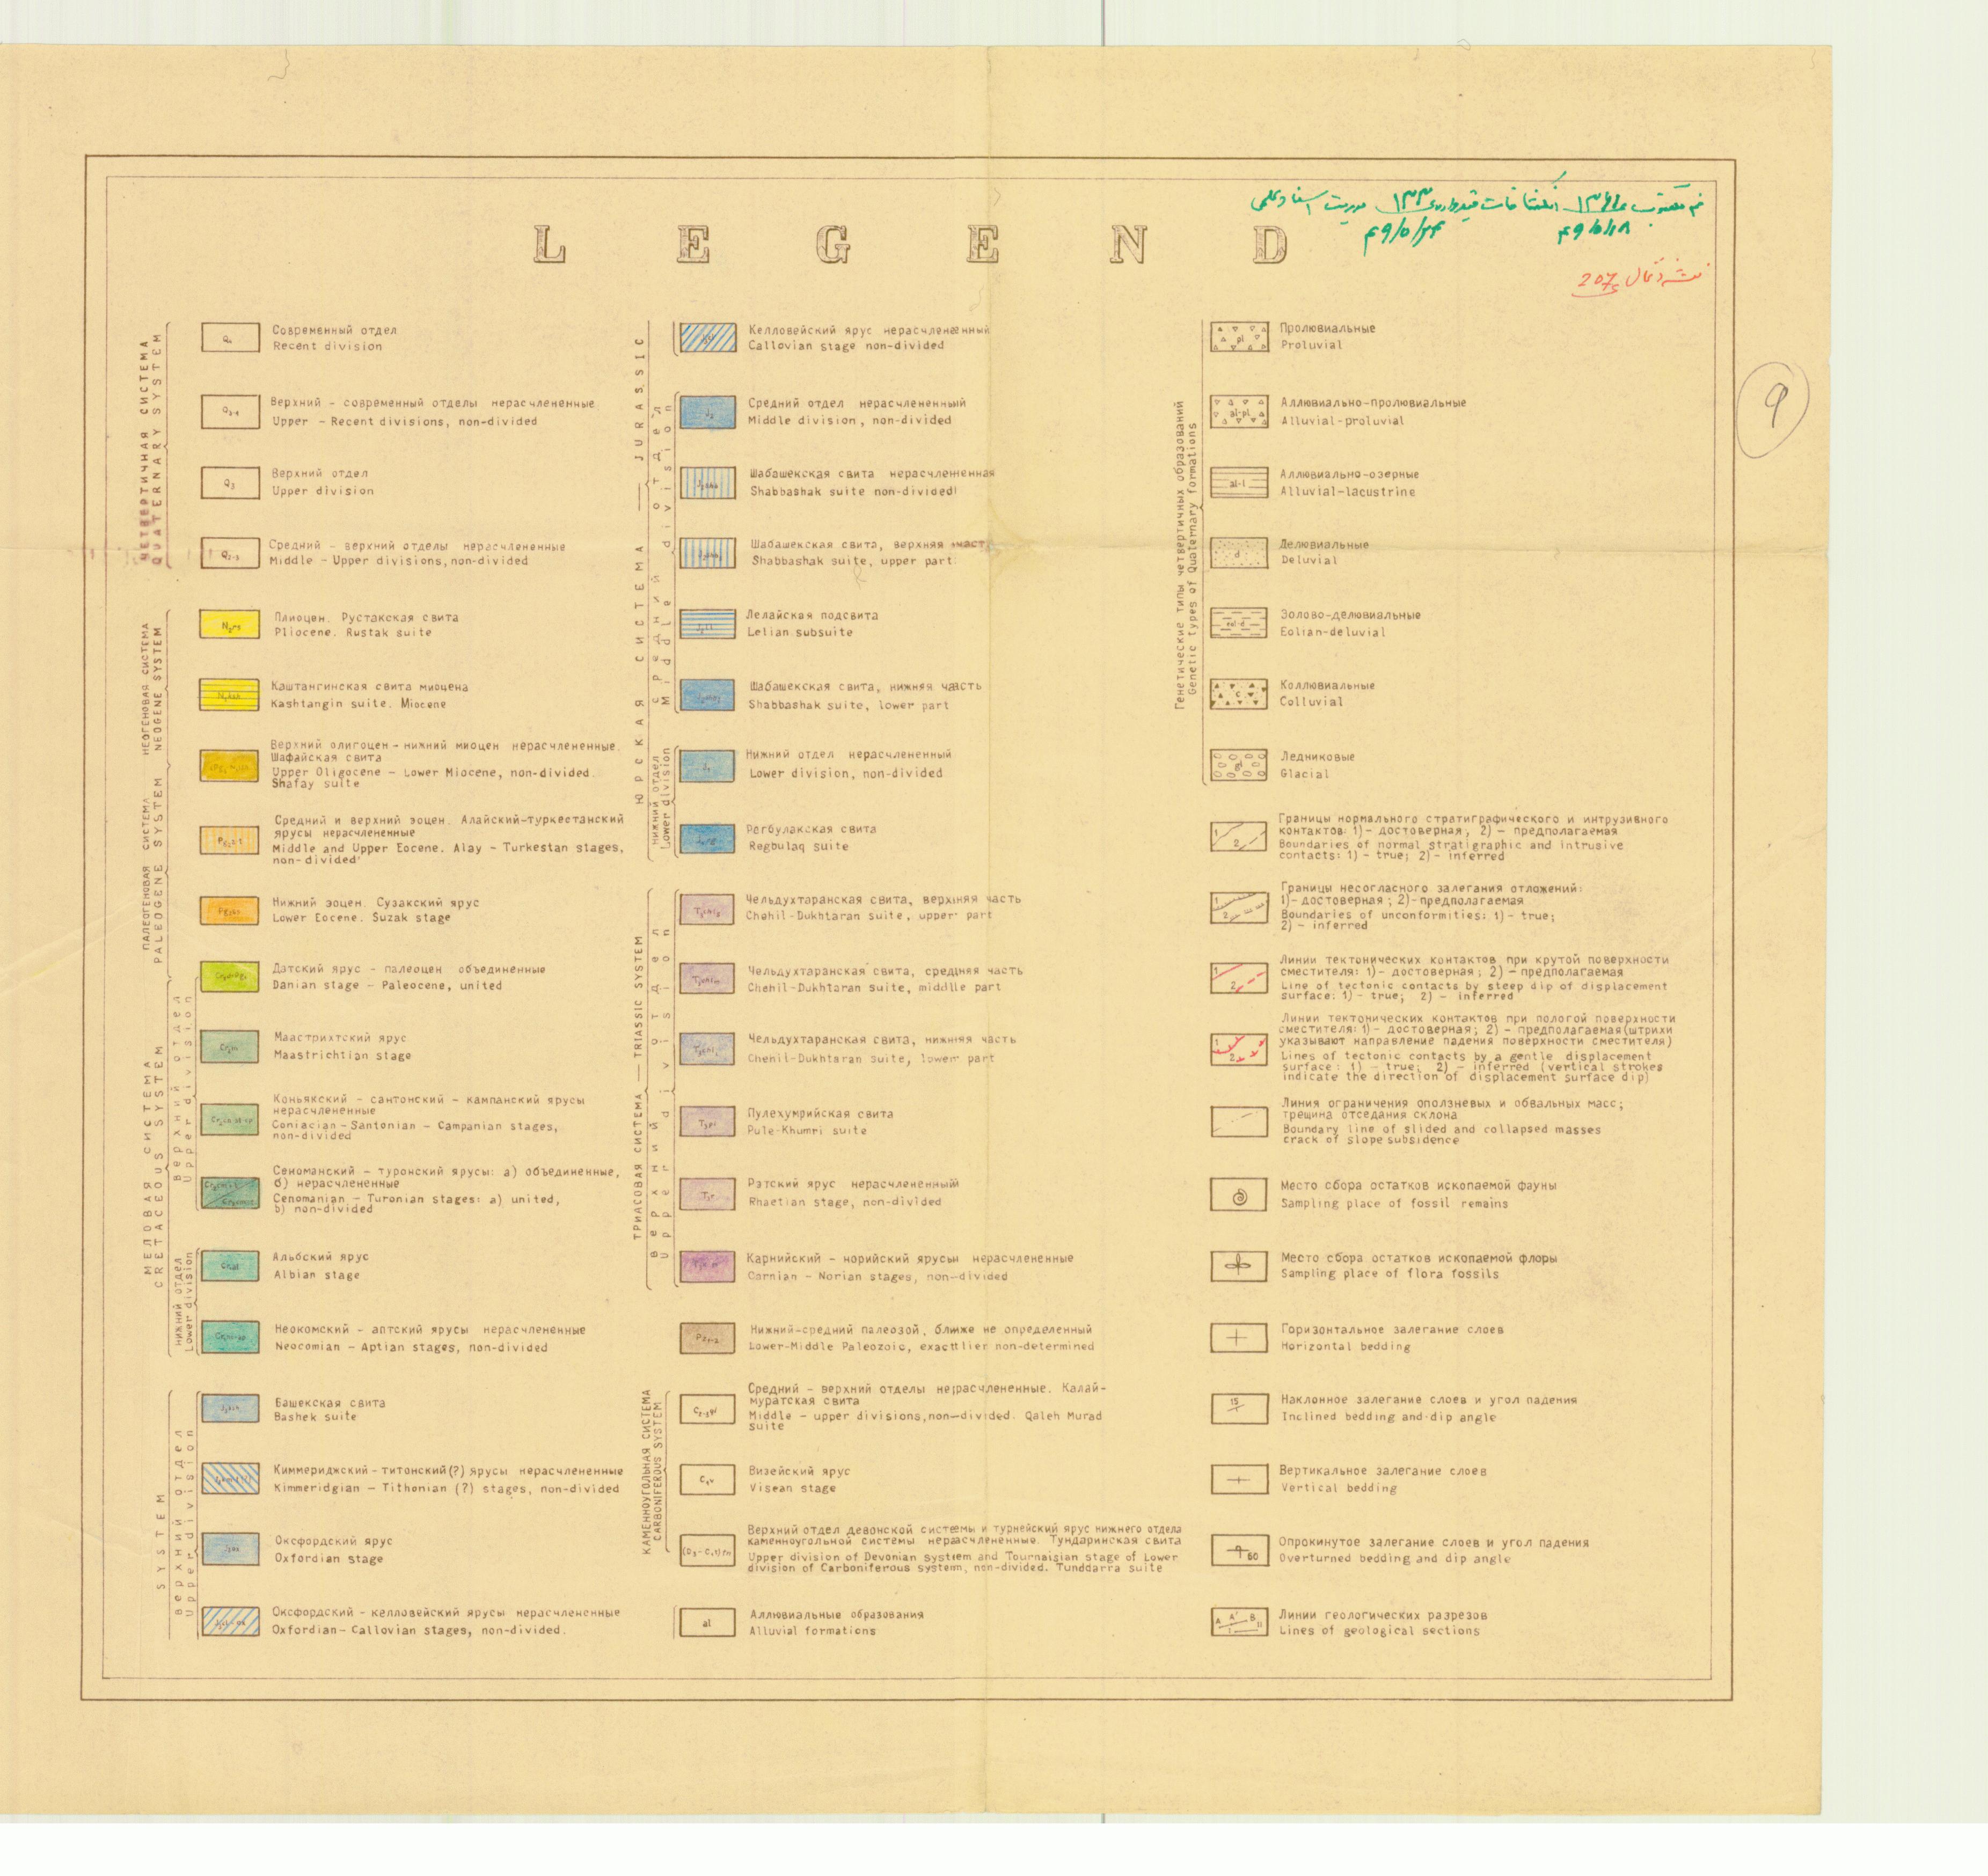 LEGEND
207
9
ЧЕТВЕРТИЧНАЯ СИСТЕМА
QUATERNARY SYSTEM
Q₄
Современный отдел
Recent division
Q₃₋₄
Верхний – современный отделы нерасчлененные
Upper – Recent divisions, non-divided
Q₃
Верхний отдел
Upper division
Q₂₋₃
Средний – верхний отделы нерасчлененные
Middle – Upper divisions, non-divided
НЕОГЕНОВАЯ СИСТЕМА
NEOGENE SYSTEM
N₂rs
Плиоцен. Рустакская свита
Pliocene. Rustak suite
Каштангинская свита миоцена
Kashtangin suite. Miocene
ПАЛЕОГЕНОВАЯ СИСТЕМА
PALEOGENE SYSTEM
Верхний олигоцен – нижний миоцен нерасчлененные.
Шафайская свита
Upper Oligocene – Lower Miocene, non-divided.
Shafay suite
Средний и верхний эоцен. Алайский-туркестанский
ярусы нерасчлененные
Middle and Upper Eocene. Alay – Turkestan stages,
non-divided
Нижний эоцен. Сузакский ярус
Lower Eocene. Suzak stage
Датский ярус – палеоцен объединенные
Danian stage – Paleocene, united
МЕЛОВАЯ СИСТЕМА
CRETACEOUS SYSTEM
Верхний отдел
Upper division
Маастрихтский ярус
Maastrichtian stage
Коньякский – сантонский – кампанский ярусы
нерасчлененные
Coniacian – Santonian – Campanian stages,
non-divided
Сеноманский – туронский ярусы: а) объединенные,
б) нерасчлененные
Cenomanian – Turonian stages: a) united,
b) non-divided
Нижний отдел
Lower division
Альбский ярус
Albian stage
Неокомский – аптский ярусы нерасчлененные
Neocomian – Aptian stages, non-divided
SYSTEM
Верхний отдел
Upper division
Башекская свита
Bashek suite
Киммериджский – титонский (?) ярусы нерасчлененные
Kimmeridgian – Tithonian (?) stages, non-divided
J₃ox
Оксфордский ярус
Oxfordian stage
Оксфордский – келловейский ярусы нерасчлененные
Oxfordian – Callovian stages, non-divided.
ЮРСКАЯ СИСТЕМА — JURASSIC
Келловейский ярус нерасчлененный
Callovian stage non-divided
Средний отдел
Middle division
J₂
Средний отдел нерасчлененный
Middle division, non-divided
Шабашекская свита нерасчлененная
Shabbashak suite non-divided
Шабашекская свита, верхняя часть
Shabbashak suite, upper part
Лелайская подсвита
Lelian subsuite
Шабашекская свита, нижняя часть
Shabbashak suite, lower part
Нижний отдел
Lower division
J₁
Нижний отдел нерасчлененный
Lower division, non-divided
Регбулакская свита
Regbulaq suite
ТРИАСОВАЯ СИСТЕМА — TRIASSIC SYSTEM
Верхний отдел
Upper division
Чельдухтаранская свита, верхняя часть
Chehil-Dukhtaran suite, upper part
Чельдухтаранская свита, средняя часть
Chehil-Dukhtaran suite, middle part
Чельдухтаранская свита, нижняя часть
Chehil-Dukhtaran suite, lower part
Пулехумрийская свита
Pule-Khumri suite
T₃r
Рэтский ярус нерасчлененный
Rhaetian stage, non-divided
Карнийский – норийский ярусы нерасчлененные
Carnian – Norian stages, non-divided
Pz₁₋₂
Нижний-средний палеозой, ближе не определенный
Lower-Middle Paleozoic, exacttlier non-determined
КАМЕННОУГОЛЬНАЯ СИСТЕМА
CARBONIFEROUS SYSTEM
Средний – верхний отделы нерасчлененные. Калай-
муратская свита
Middle – upper divisions, non-divided. Qaleh Murad
suite
C₁v
Визейский ярус
Visean stage
Верхний отдел девонской системы и турнейский ярус нижнего отдела
каменноугольной системы нерасчлененные. Тундаринская свита
Upper division of Devonian system and Tournaisian stage of Lower
division of Carboniferous system, non-divided. Tunddarra suite
al
Аллювиальные образования
Alluvial formations
Генетические типы четвертичных образований
Genetic types of Quaternary formations
pl
Пролювиальные
Proluvial
al-pl
Аллювиально-пролювиальные
Alluvial-proluvial
al-l
Аллювиально-озерные
Alluvial-lacustrine
d
Делювиальные
Deluvial
eol-d
Золово-делювиальные
Eolian-deluvial
c
Коллювиальные
Colluvial
gl
Ледниковые
Glacial
1 2
Границы нормального стратиграфического и интрузивного
контактов: 1) – достоверная; 2) – предполагаемая
Boundaries of normal stratigraphic and intrusive
contacts: 1) – true; 2) – inferred
1 2
Границы несогласного залегания отложений:
1) – достоверная; 2) – предполагаемая
Boundaries of unconformities: 1) – true;
2) – inferred
1 2
Линии тектонических контактов при крутой поверхности
сместителя: 1) – достоверная; 2) – предполагаемая
Line of tectonic contacts by steep dip of displacement
surface: 1) – true; 2) – inferred
1 2
Линии тектонических контактов при пологой поверхности
сместителя: 1) – достоверная; 2) – предполагаемая (штрихи
указывают направление падения поверхности сместителя)
Lines of tectonic contacts by a gentle displacement
surface: 1) – true; 2) – inferred (vertical strokes
indicate the direction of displacement surface dip)
Линия ограничения оползневых и обвальных масс;
трещина отседания склона
Boundary line of slided and collapsed masses
crack of slope subsidence
Место сбора остатков ископаемой фауны
Sampling place of fossil remains
Место сбора остатков ископаемой флоры
Sampling place of flora fossils
Горизонтальное залегание слоев
Horizontal bedding
15
Наклонное залегание слоев и угол падения
Inclined bedding and dip angle
Вертикальное залегание слоев
Vertical bedding
60
Опрокинутое залегание слоев и угол падения
Overturned bedding and dip angle
A A' B
I II
Линии геологических разрезов
Lines of geological sections